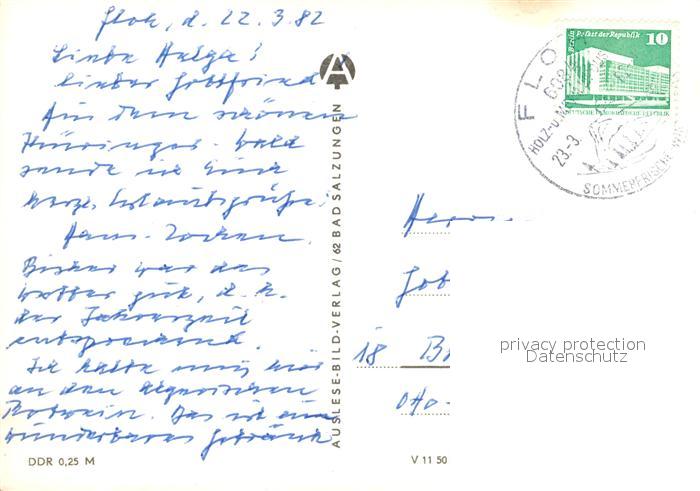 Floh, d. 22.3.82
Liebe Helga!
Lieber Gottfried!
Aus dem schönen
Thüringer-Wald
sende ich Euch
herzl. Urlaubsgrüße!
Hans-Jochen.
Bisher war das
Wetter gut, d. h.
der Jahreszeit
entsprechend.
Ich halte mich hier
an den algerischen
Rotwein. Das ist ein
wunderbares Getränk
DDR 0,25 M
AUSLESE-BILD-VERLAG / 62 BAD SALZUNGEN
V 11 50
Berlin Palast der Republik
10
DEUTSCHE DEMOKRATISCHE REPUBLIK
FLO
HOLZ-U.
23.-3.
SOMMERFRISCHE
Herrn
Got
18 B
Otto-
privacy protection
Datenschutz